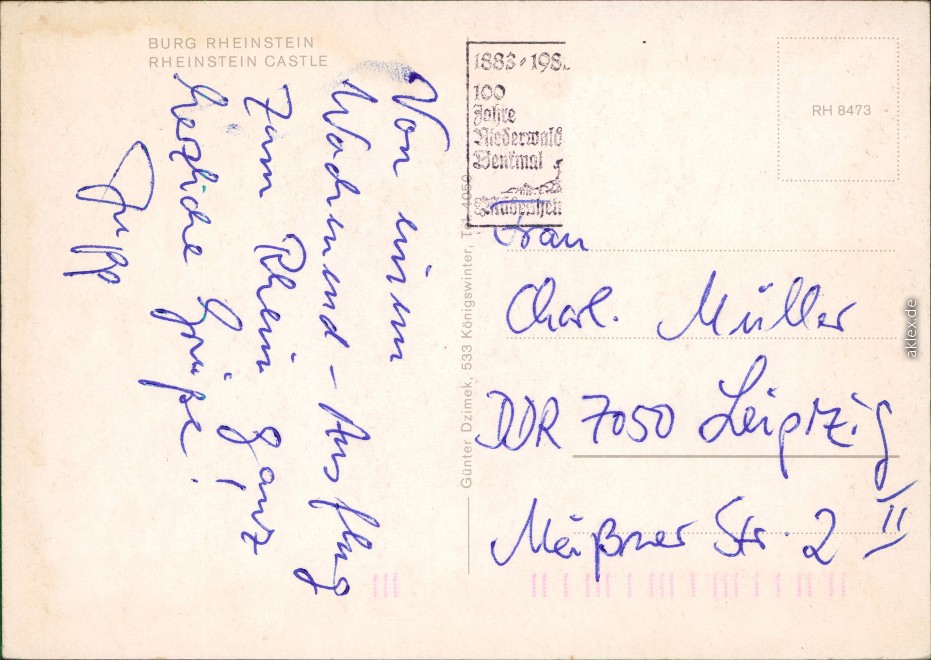 BURG RHEINSTEIN
RHEINSTEIN CASTLE
Von einem
Wochenend-Ausflug
zum Rhein ganz
herzliche Grüße!
Jupp
Günter Dzimek, 533 Königswinter, T 4050
1883-198.
100
Jahre
Niederwald
Denkmal
Rüdesheim
RH 8473
Frau
Charl. Müller
DDR 7050 Leipzig
Meißner Str. 2 II
aklex.de